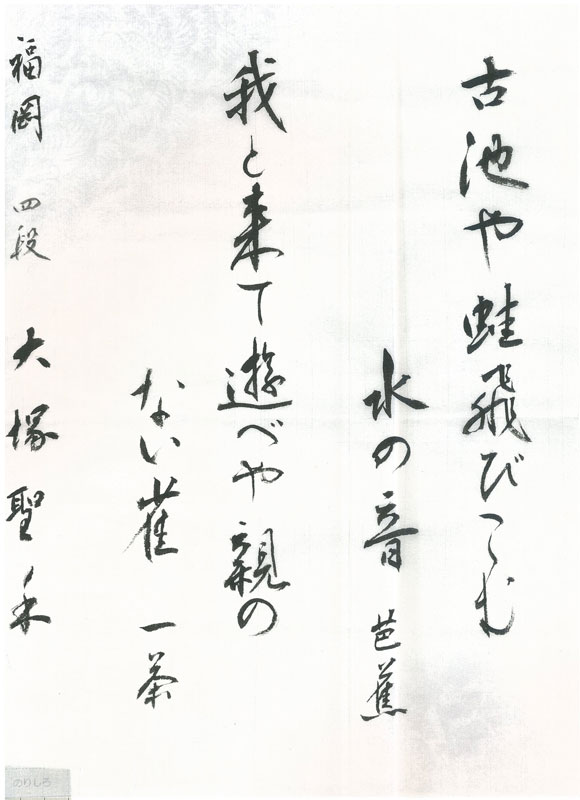 古池や蛙飛びこむ
水の音 芭蕉
我と来て遊べや親の
ない雀 一茶
福岡 四段 大塚聖禾
のりしろ